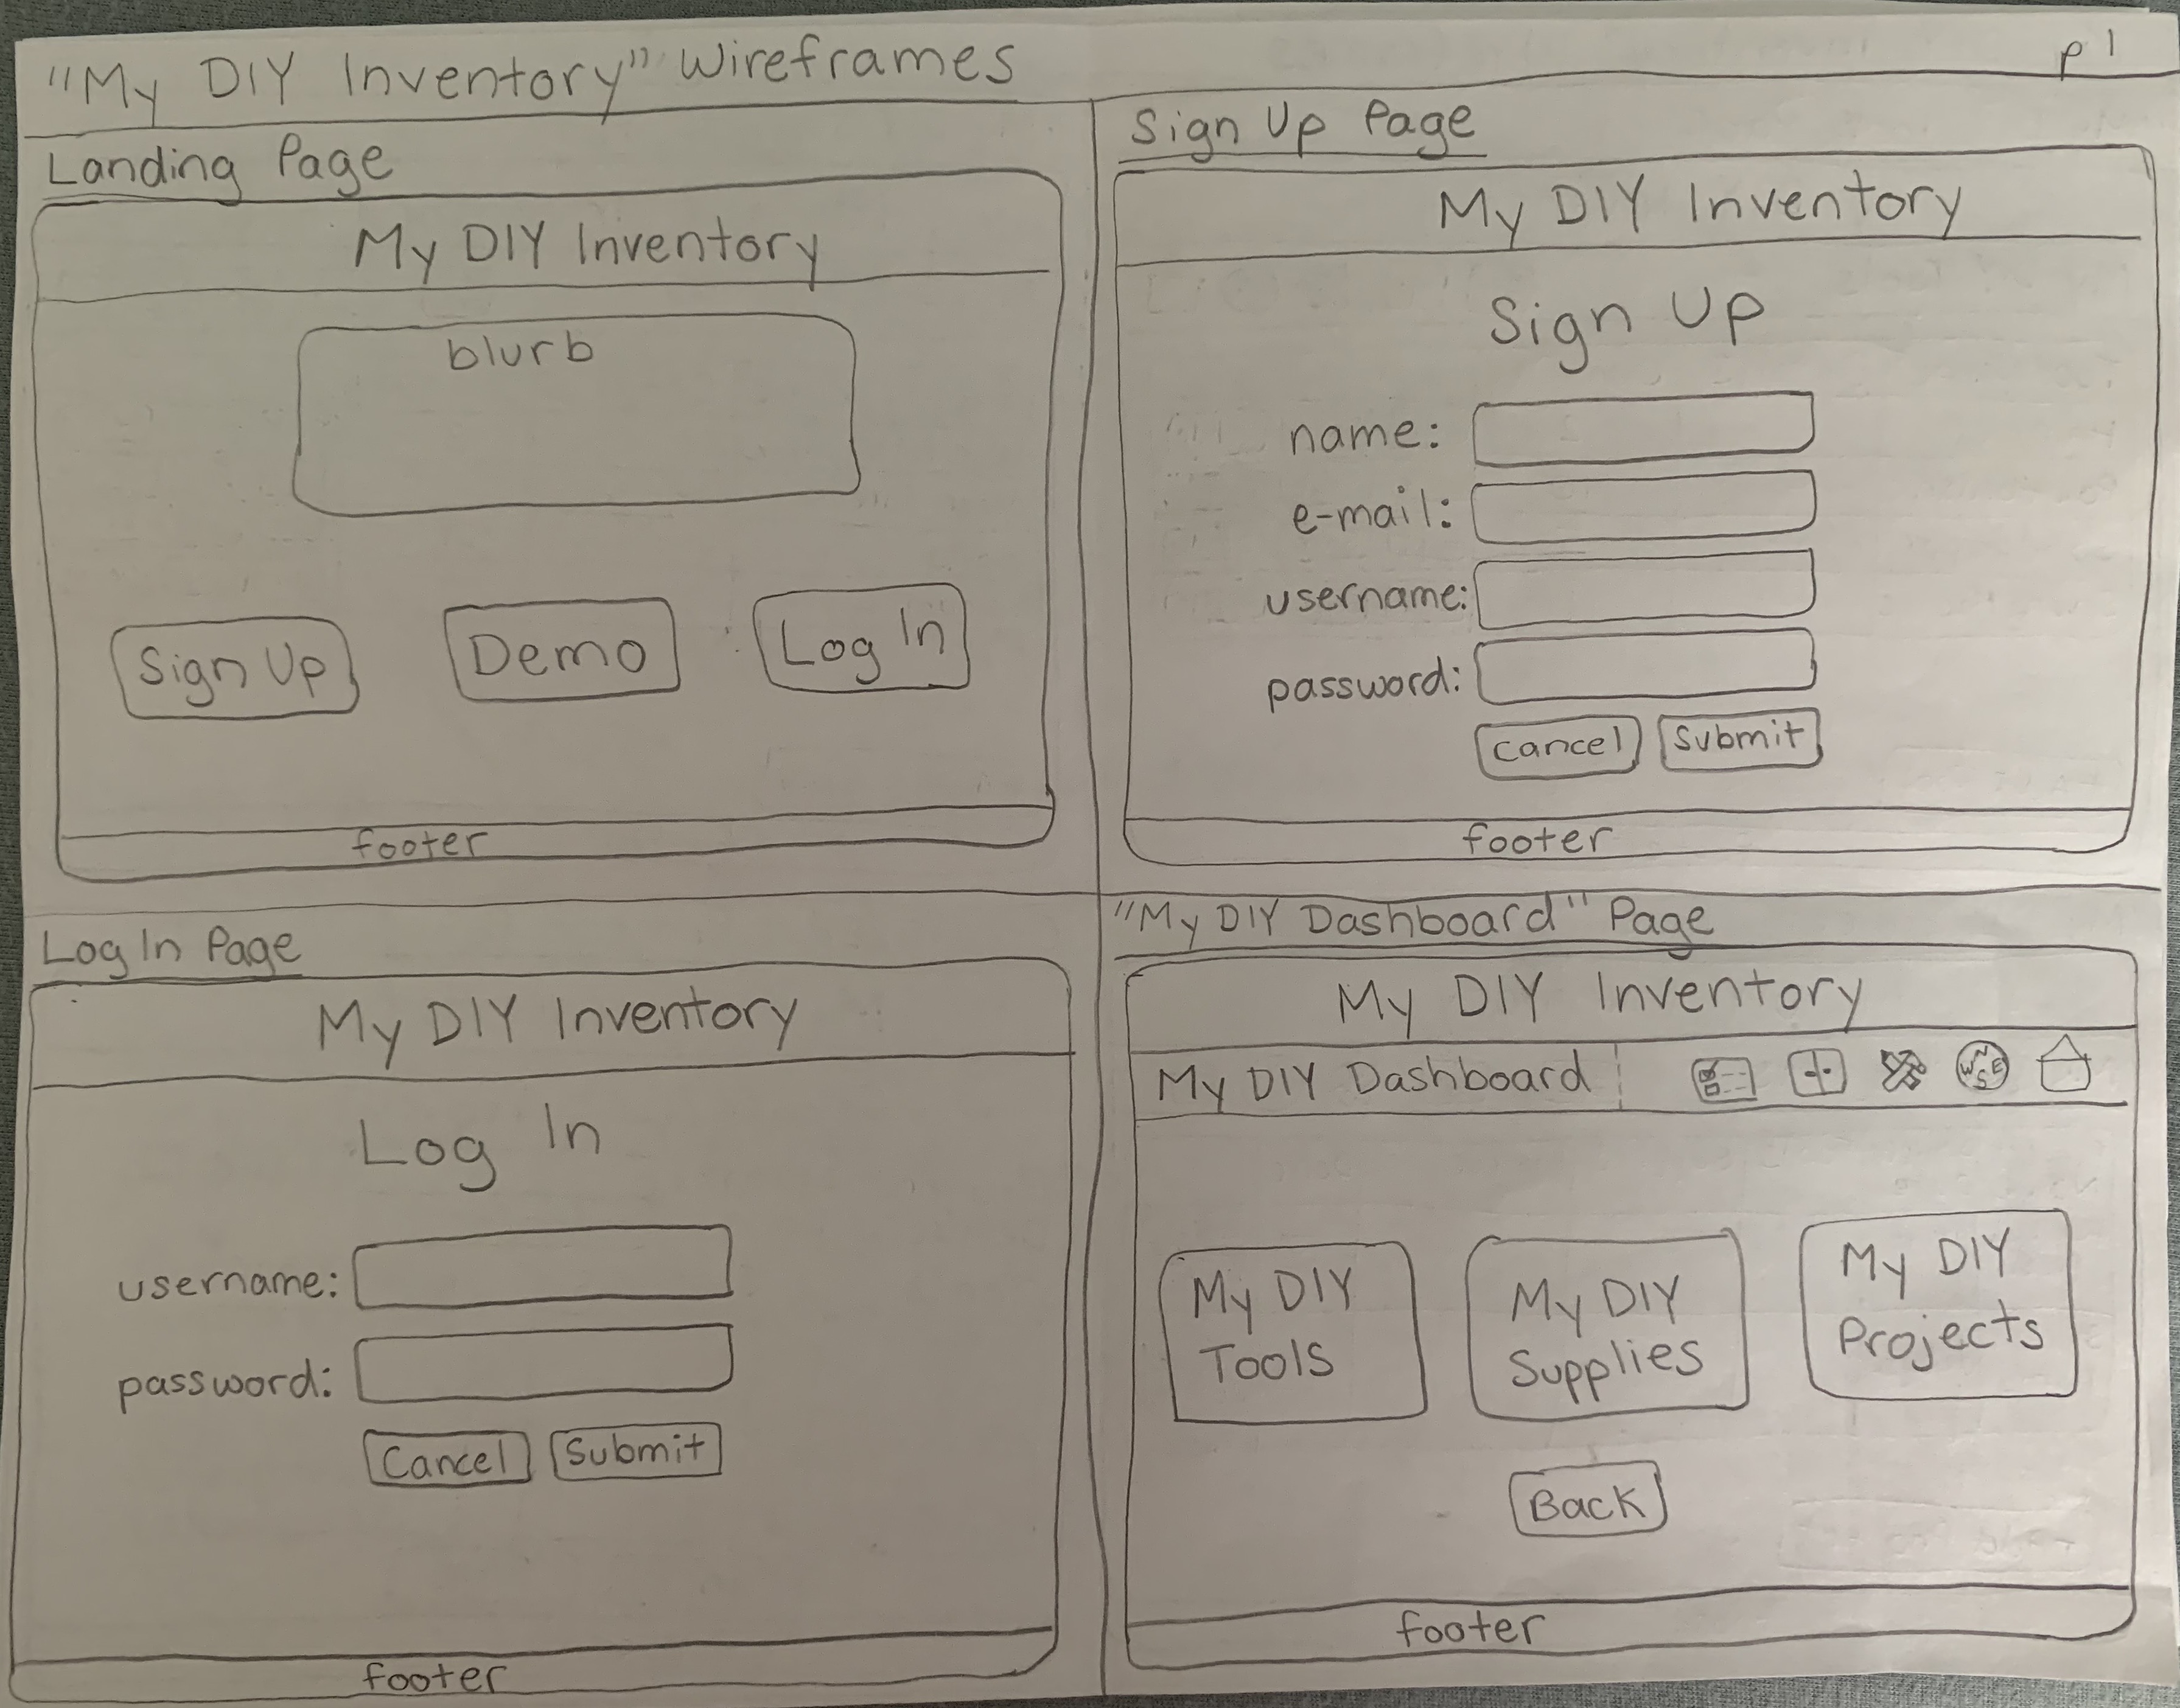 "My DIY Inventory" Wireframes
p 1
Landing Page
My DIY Inventory
blurb
Sign Up
Demo
Log In
footer
Sign Up Page
My DIY Inventory
Sign Up
name:
e-mail:
username:
password:
Cancel
Submit
footer
Log In Page
My DIY Inventory
Log In
username:
password:
Cancel
Submit
footer
"My DIY Dashboard" Page
My DIY Inventory
My DIY Dashboard
N
W E
S
My DIY
Tools
My DIY
Supplies
My DIY
Projects
Back
footer